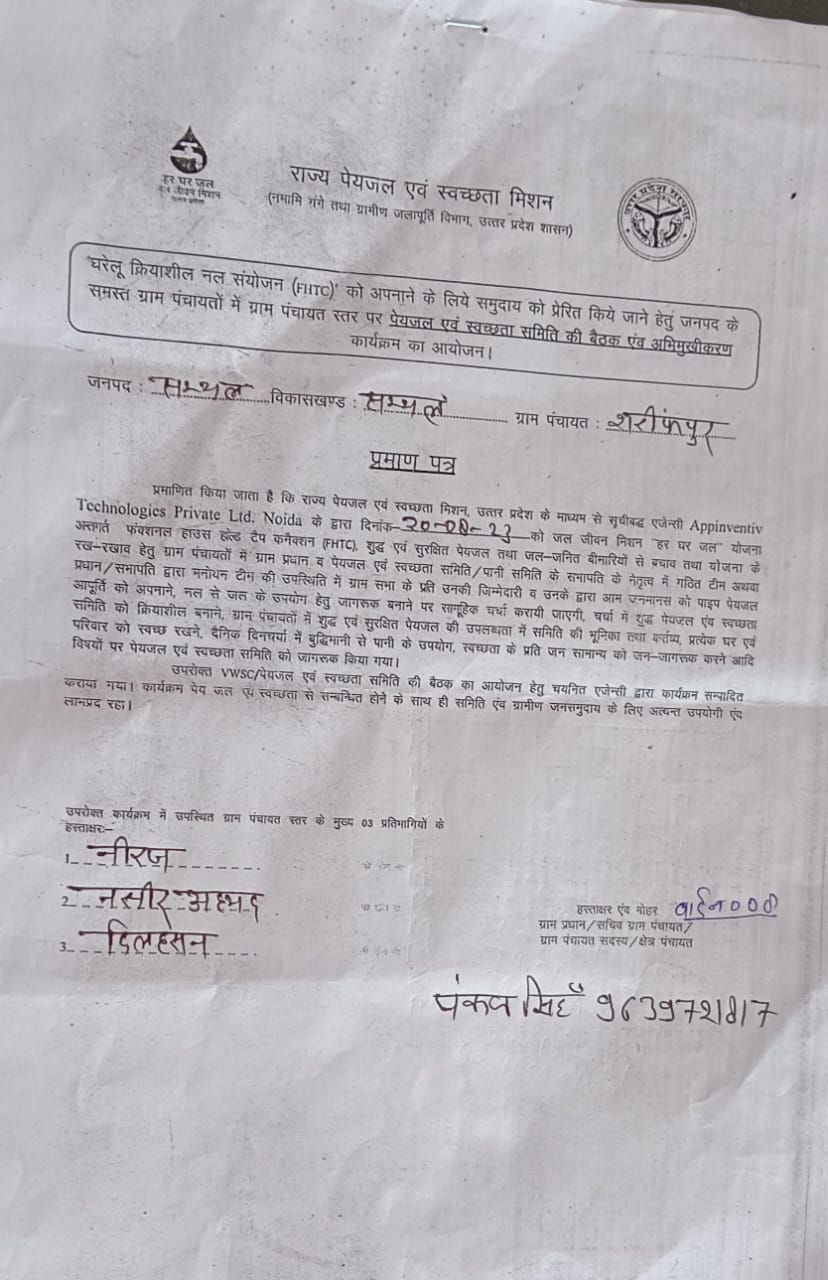 हर घर जल
जल जीवन मिशन
राज्य पेयजल एवं स्वच्छता मिशन
(नमामि गंगे तथा ग्रामीण जलापूर्ति विभाग, उत्तर प्रदेश शासन)
उत्तर प्रदेश सरकार
'घरेलू क्रियाशील नल संयोजन (FHTC)' को अपनाने के लिये समुदाय को प्रेरित किये जाने हेतु जनपद के
समस्त ग्राम पंचायतों में ग्राम पंचायत स्तर पर पेयजल एवं स्वच्छता समिति की बैठक एंव अभिमुखीकरण
कार्यक्रम का आयोजन।
जनपद : सम्भल विकासखण्ड : सम्भल ग्राम पंचायत : शरीफपुर
प्रमाण पत्र
प्रमाणित किया जाता है कि राज्य पेयजल एवं स्वच्छता मिशन, उत्तर प्रदेश के माध्यम से सूचीबद्ध एजेन्सी Appinventiv
Technologies Private Ltd. Noida के द्वारा दिनांक-20-08-23 को जल जीवन मिशन "हर घर जल" योजना
अन्तर्गत फंक्शनल हाउस होल्ड टैप कनैक्शन (FHTC), शुद्ध एवं सुरक्षित पेयजल तथा जल-जनित बीमारियों से बचाव तथा योजना के
रख-रखाव हेतु ग्राम पंचायतों में ग्राम प्रधान व पेयजल एवं स्वच्छता समिति/पानी समिति के सभापति के नेतृत्व में गठित टीम अथवा
प्रधान/सभापति द्वारा मनोयन टीम की उपस्थिति में ग्राम सभा के प्रति उनकी जिम्मेदारी व उनके द्वारा आम जनमानस को पाइप पेयजल
आपूर्ति को अपनाने, नल से जल के उपयोग हेतु जागरूक बनाने पर सामूहिक चर्चा करायी जाएगी, चर्चा में शुद्ध पेयजल एंव स्वच्छता
समिति को क्रियाशील बनाने, ग्राम पंचायतों में शुद्ध एवं सुरक्षित पेयजल की उपलब्धता में समिति की भूमिका तथा कर्तव्य, प्रत्येक घर एवं
परिवार को स्वच्छ रखने, दैनिक दिनचर्या में बुद्धिमानी से पानी के उपयोग, स्वच्छता के प्रति जन सामान्य को जन-जागरूक करने आदि
विषयों पर पेयजल एवं स्वच्छता समिति को जागरूक किया गया।
उपरोक्त VWSC/पेयजल एवं स्वच्छता समिति की बैठक का आयोजन हेतु चयनित एजेन्सी द्वारा कार्यक्रम सम्पादित
कराया गया। कार्यक्रम पेय जल एवं स्वच्छता से सम्बन्धित होने के साथ ही समिति एंव ग्रामीण जनसमुदाय के लिए अत्यन्त उपयोगी एंव
लाभप्रद रहा।
उपरोक्त कार्यक्रम में उपस्थित ग्राम पंचायत स्तर के मुख्य 03 प्रतिभागियों के
हस्ताक्षर:-
1. नीरज
2. नसीर अहमद
3. दिलहसन
हस्ताक्षर एंव मोहर
ग्राम प्रधान/सचिव ग्राम पंचायत/
ग्राम पंचायत सदस्य/क्षेत्र पंचायत
पंकज सिंह 9639721817